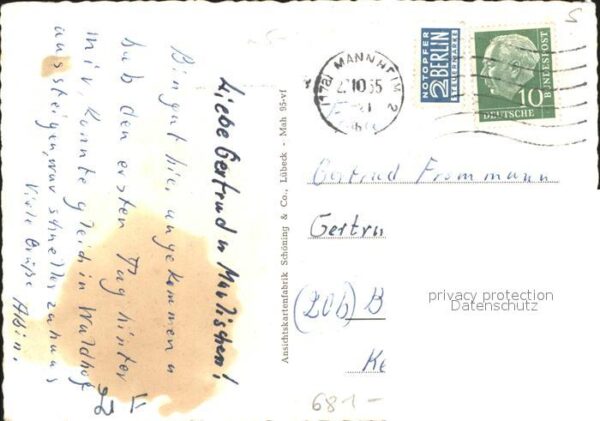 Liebe Gertrud u Maulischen!
Bin gut hier angekommen u
hab den ersten Tag hinter
mir, konnte gleich in Waldhof
aussteigen, war schneller zuhaus
Viele Grüße Albin.
Ansichtskartenfabrik Schöning & Co., Lübeck - Mah 95-vf
(17a) MANNHEIM 2
2.10.55
NOTOPFER
2 BERLIN
STEUERMARKE
10
DEUTSCHE
BUNDESPOST
Gertrud Frommann
Gertru
(20b) B
Ke
privacy protection
Datenschutz
681-